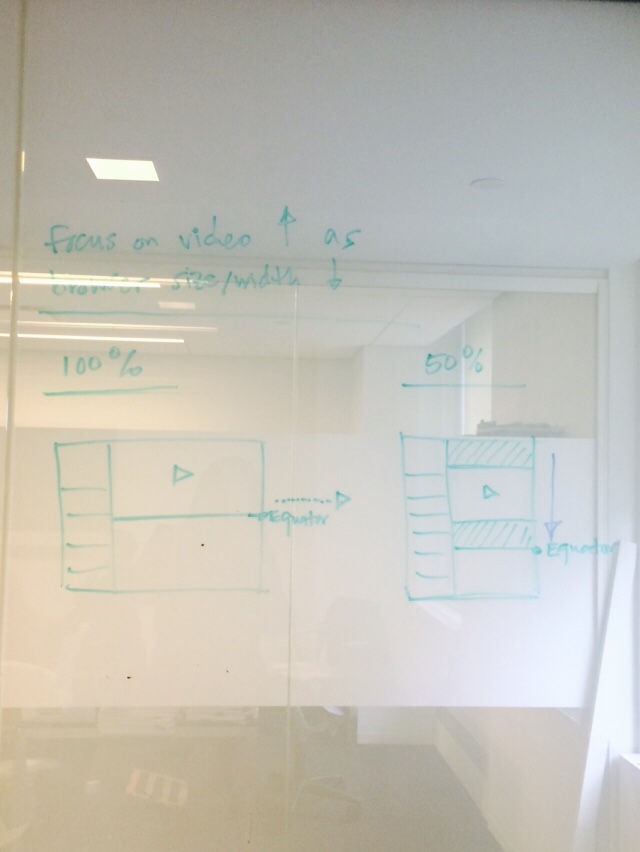 Focus on video ↑ as
browser size/width ↓
100%
50%
Equator
Equator